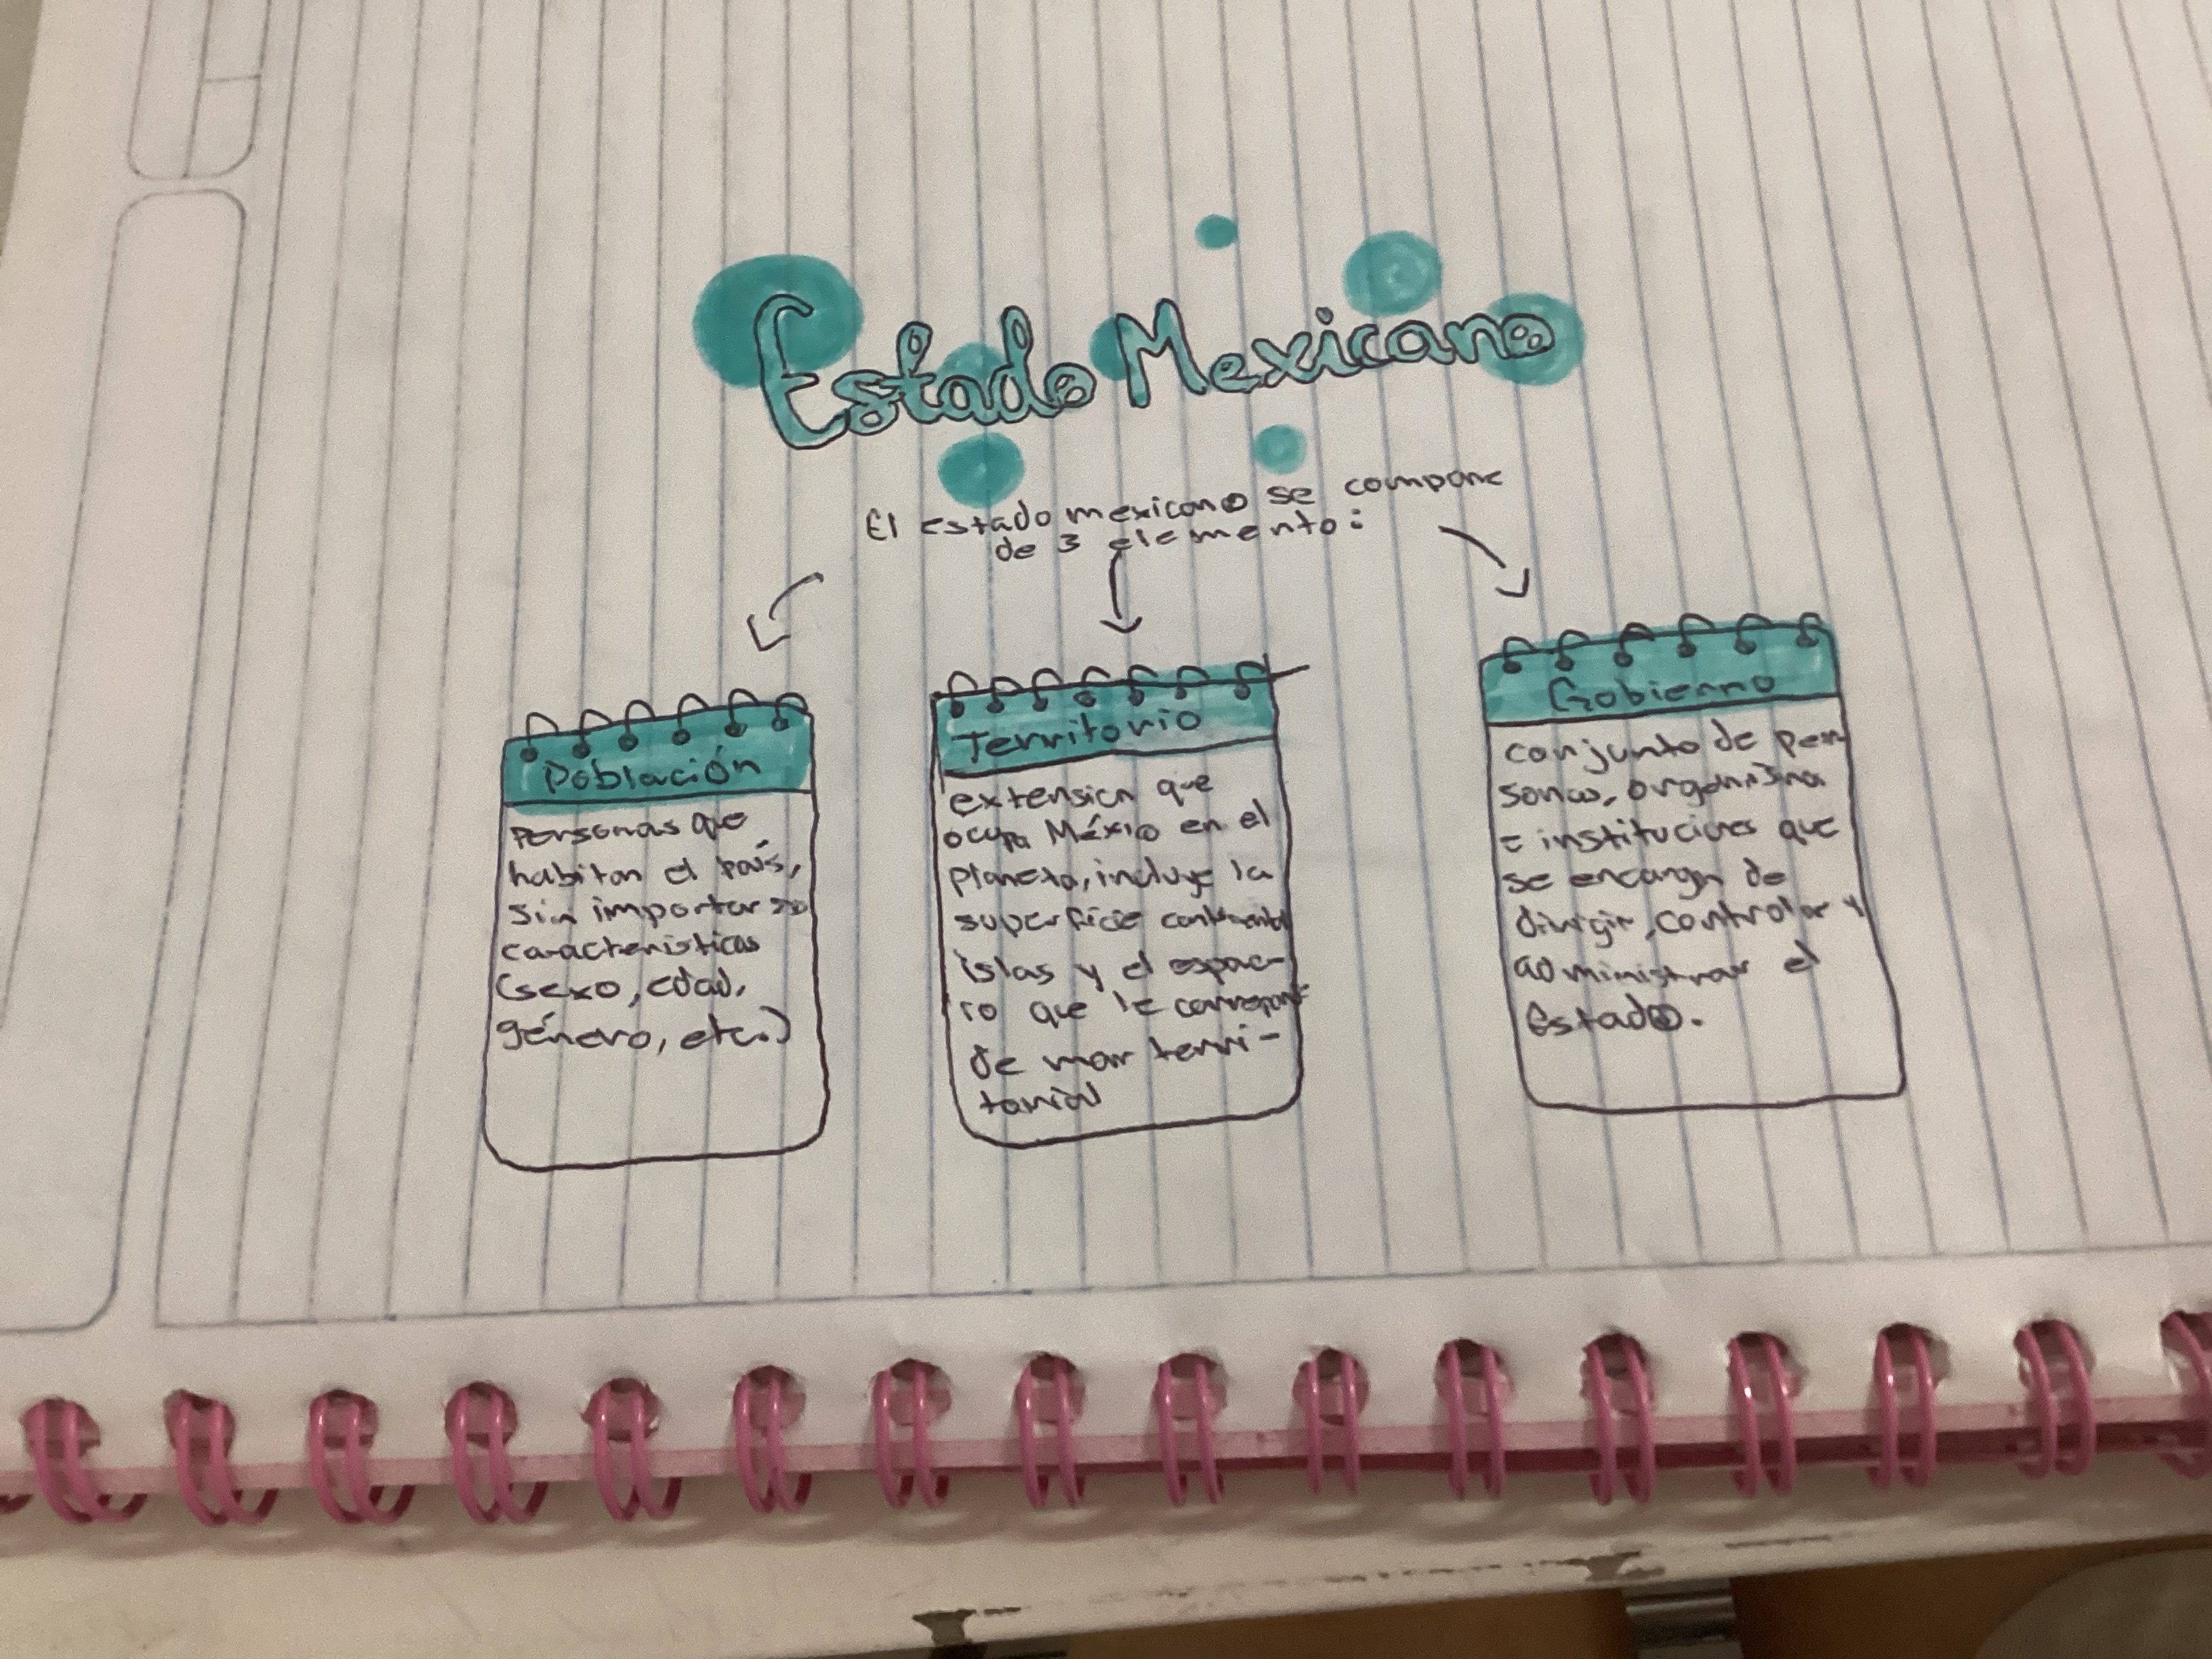 Estado Mexicano
El estado mexicano se compone
de 3 elemento:
Población
personas que
habitan el país,
sin importar
características
(sexo, edad,
género, etc.)
Territorio
extensión que
ocupa México en el
planeta, incluye la
superficie continental
islas y el espac-
io que le correspon
de mar terri-
torial
Gobierno
conjunto de per-
sonas,
e instituciones que
se encargan de
dirigir, controlar y
administrar el
Estado.